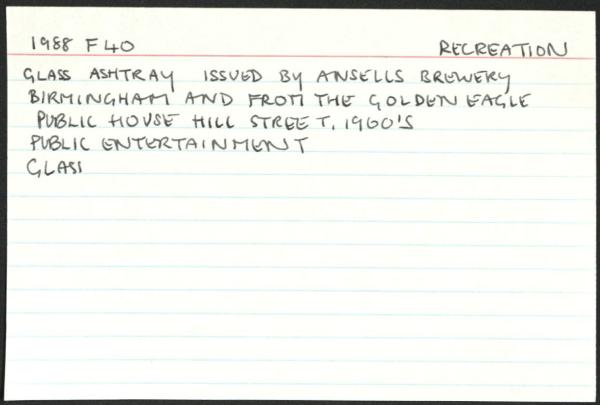 1988 F40 RECREATION
GLASS ASHTRAY ISSUED BY ANSELLS BREWERY
BIRMINGHAM AND FROM THE GOLDEN EAGLE
PUBLIC HOUSE HILL STREET, 1960'S
PUBLIC ENTERTAINMENT
GLASS